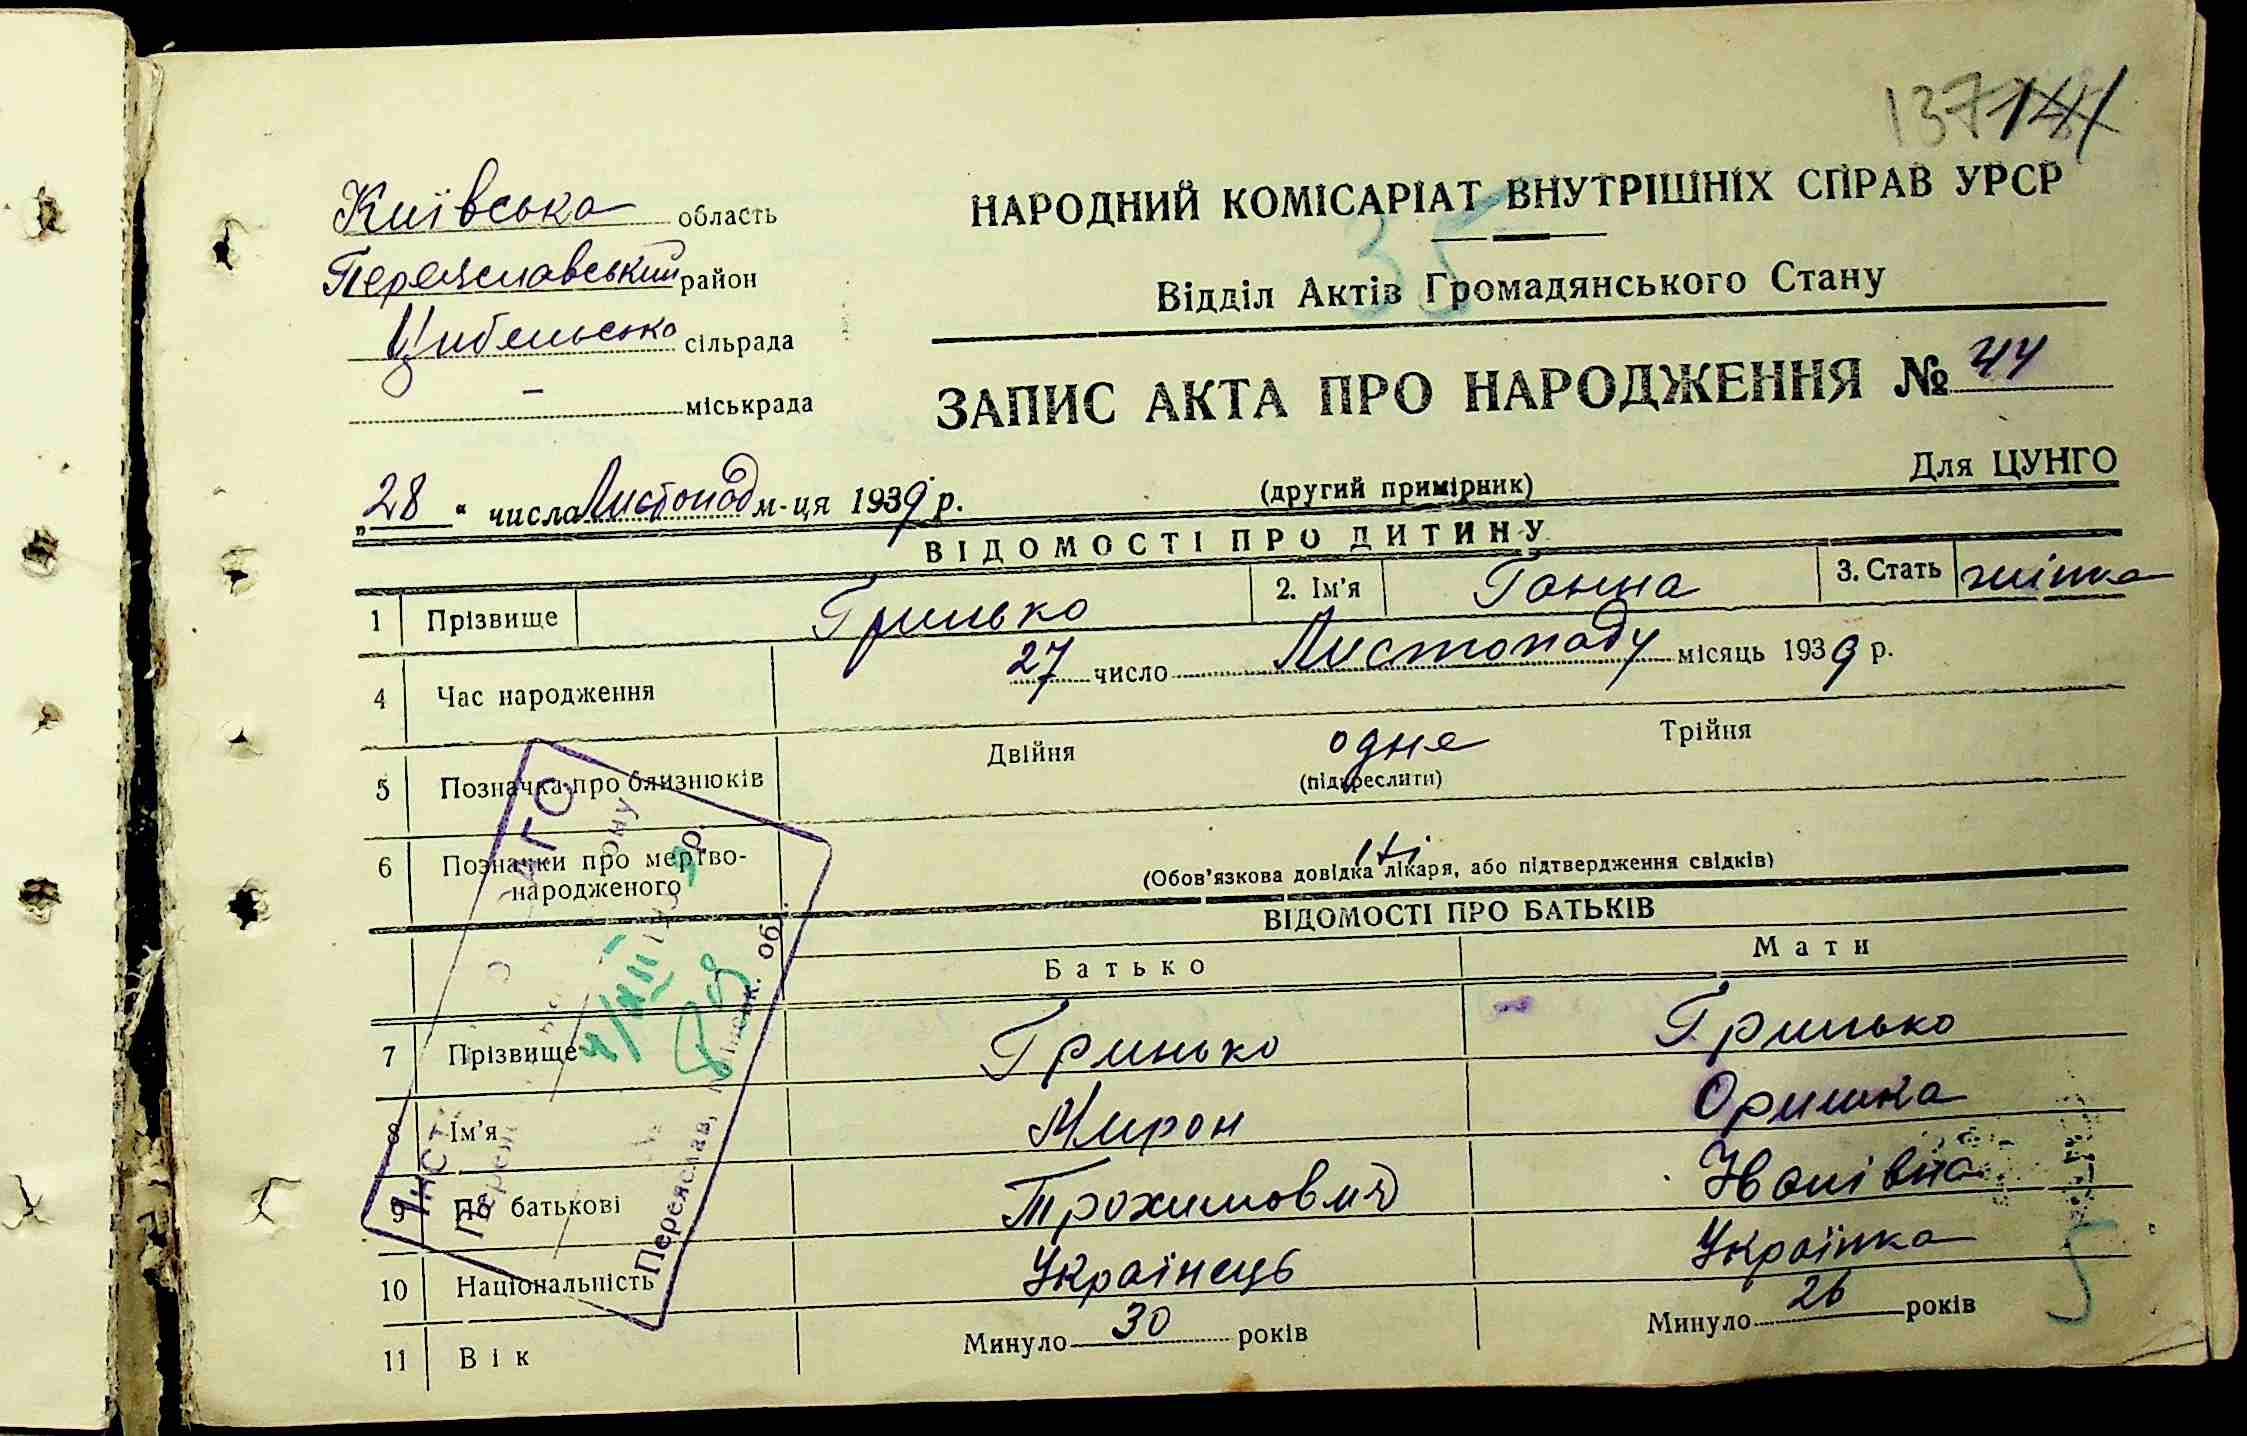 137 141
Київська область
Переяславський район
Цибельська сільрада
- міськрада
НАРОДНИЙ КОМІСАРІАТ ВНУТРІШНІХ СПРАВ УРСР
35
Відділ Актів Громадянського Стану
ЗАПИС АКТА ПРО НАРОДЖЕННЯ № 44
„28" числа Листопад м-ця 1939 р.
(другий примірник)
Для ЦУНГО
ВІДОМОСТІ ПРО ДИТИНУ
1 Прізвище Гринько 2. Ім'я Ганна 3. Стать жінка
4 Час народження 27 число Листопаду місяць 1939 р.
5 Позначка про близнюків Двійня одне Трійня
(підкреслити)
6 Позначки про мертво-
народженого
(Обов'язкова довідка лікаря, або підтвердження свідків)
ВІДОМОСТІ ПРО БАТЬКІВ
Батько Мати
7 Прізвище Гринько Гринько
8 Ім'я Мирон Оришка
9 По батькові Трохимович Іванівна
10 Національність Українець Українка
11 Вік Минуло 30 років Минуло 26 років
5